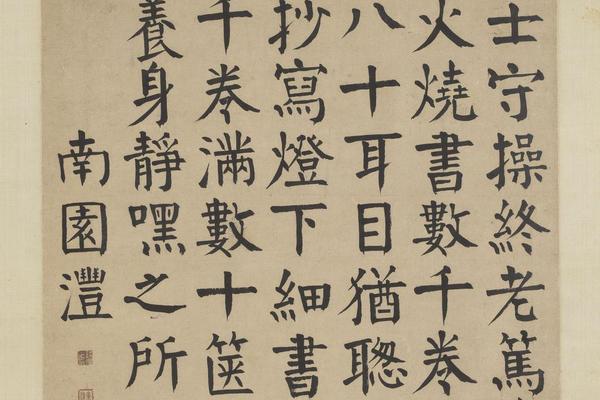 士守操終老篤
火燒書數千卷
八十耳目猶聰
抄寫燈下細書
千卷滿數十篋
養身靜嘿之所
南園灃